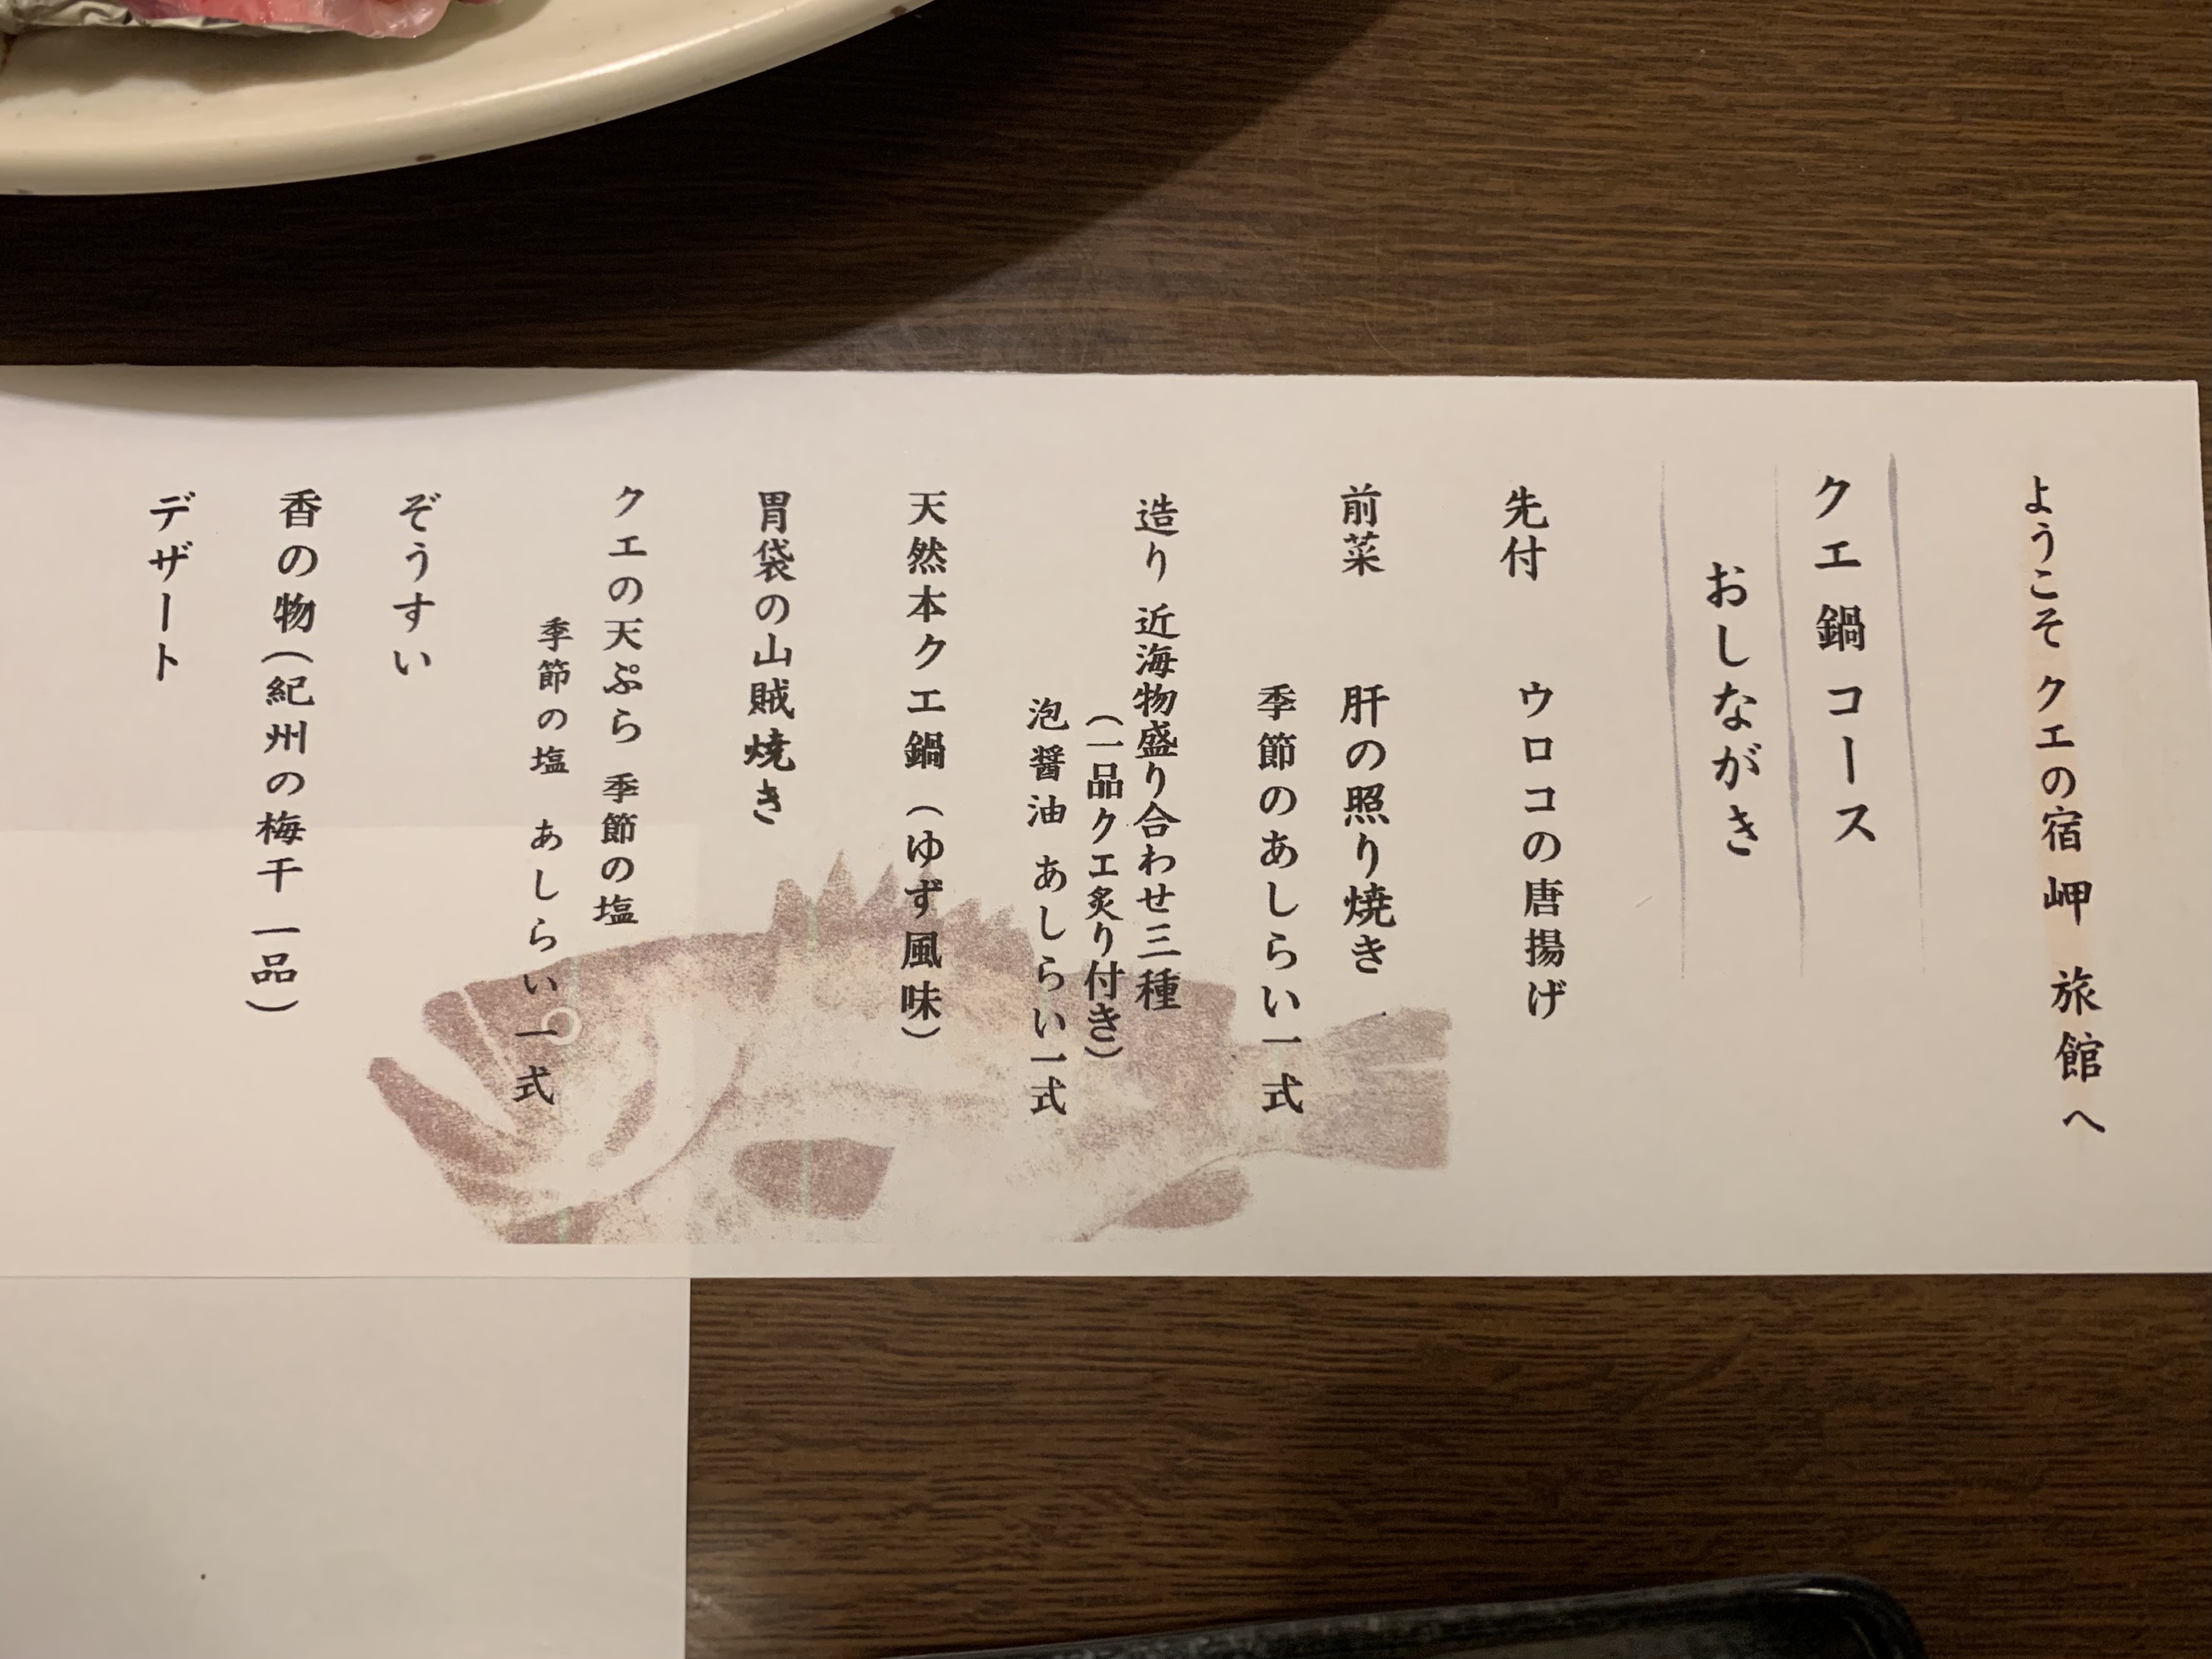 ようこそ クエの宿 岬 旅館 へ
クエ 鍋 コース
おしながき
先付 ウロコの唐揚げ
前菜 肝の照り焼き
季節のあしらい一式
造り 近海物盛り合わせ三種
(一品クエ炙り付き)
泡醤油 あしらい一式
天然本クエ鍋 (ゆず風味)
胃袋の山賊焼き
クエの天ぷら 季節の塩
季節の塩 あしらい一式
ぞうすい
香の物(紀州の梅干一品)
デザート